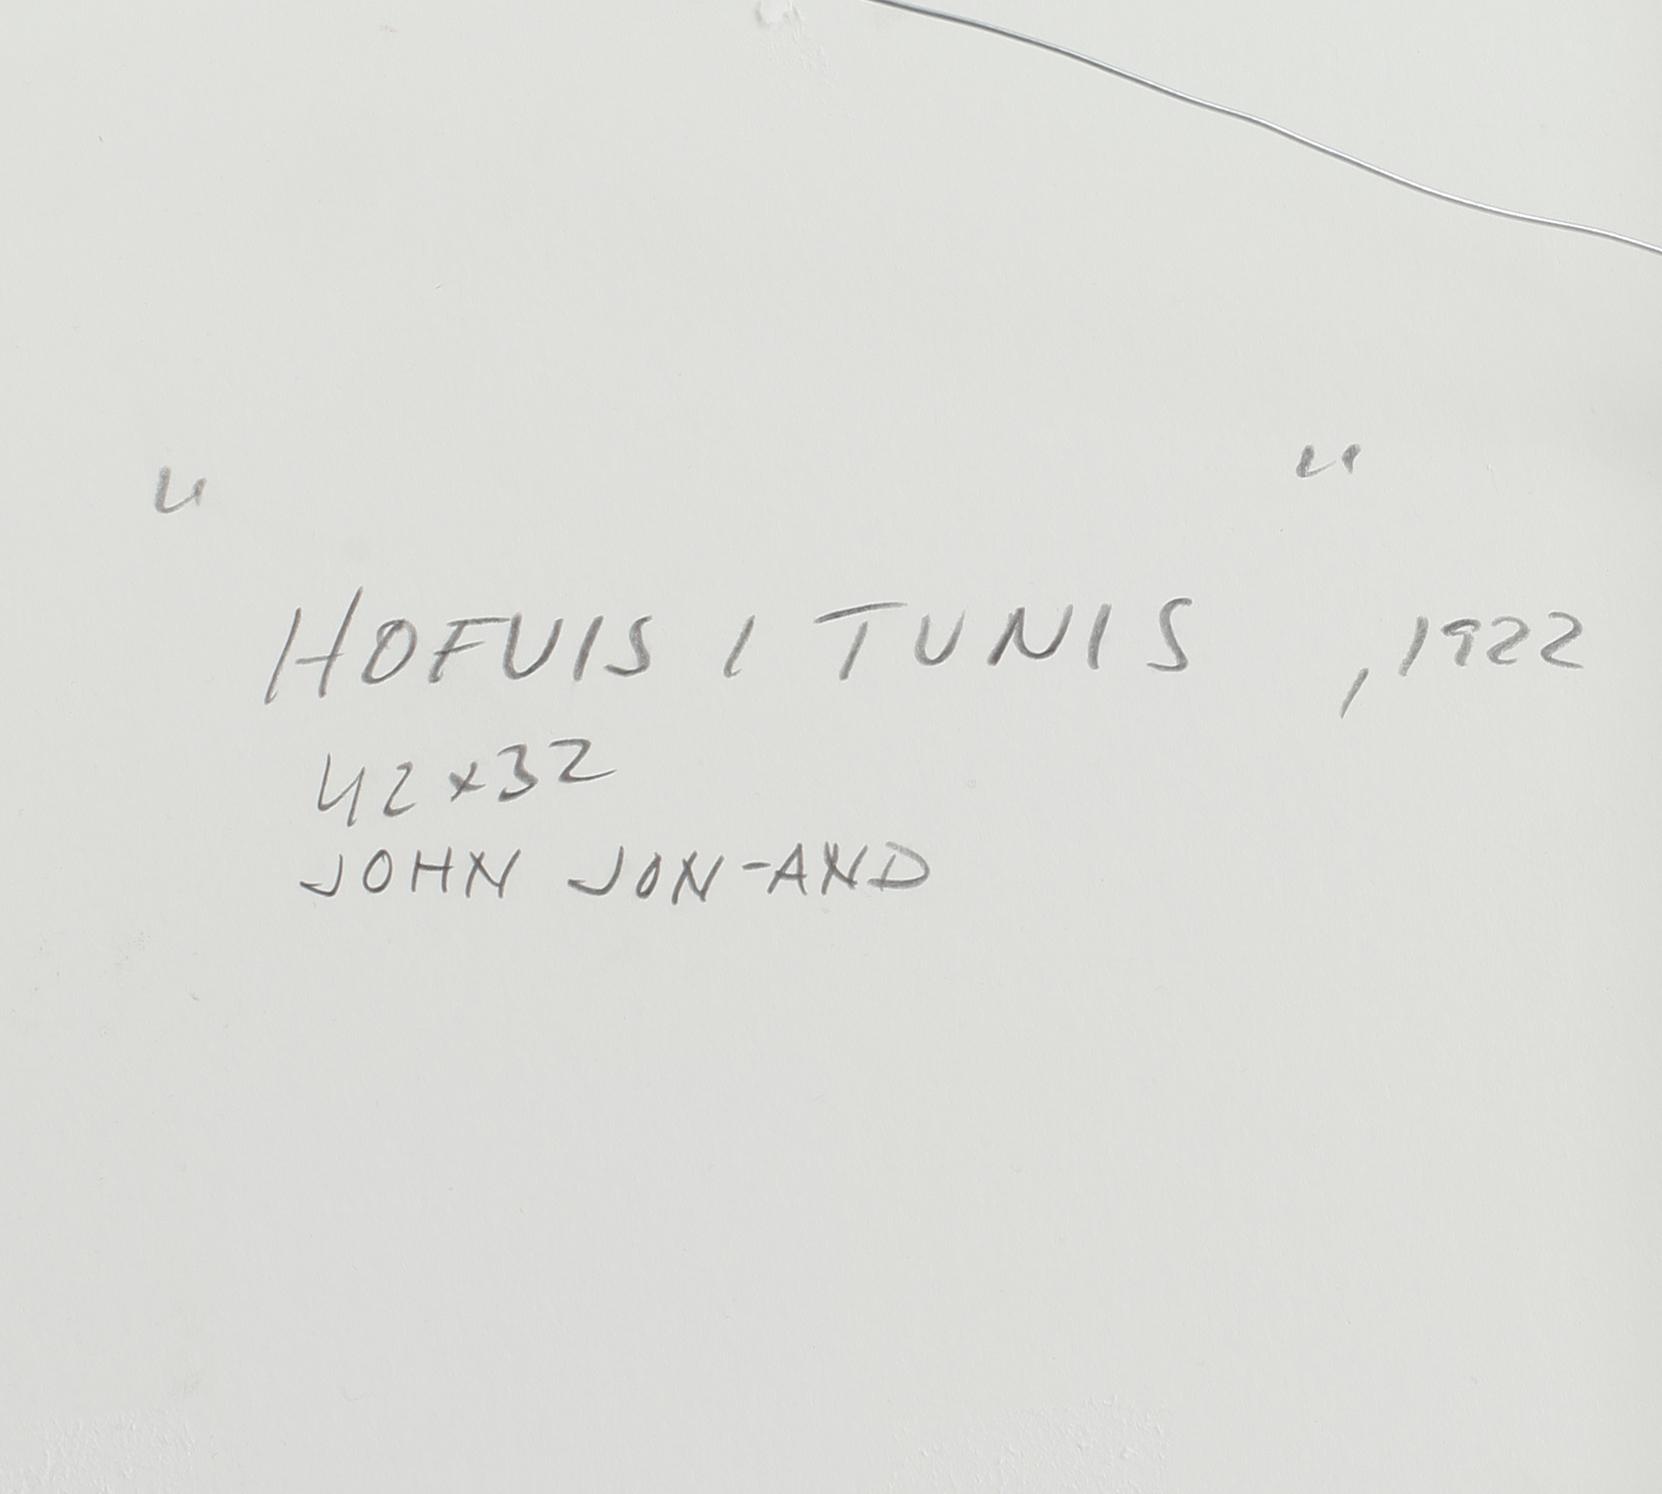 "HOFUIS I TUNIS", 1922
42x32
JOHN JON-AND